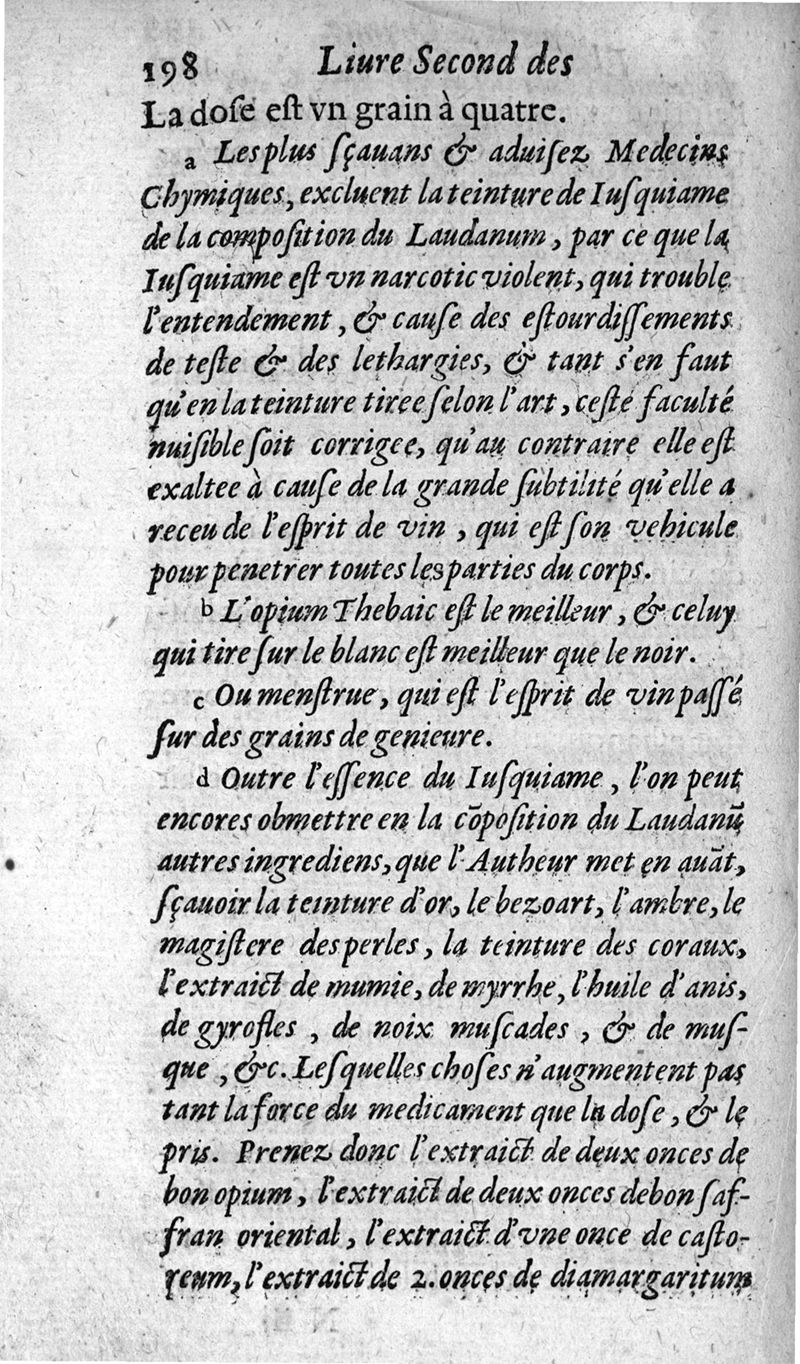 198 Liure Second des
La dose est vn grain à quatre.
a Les plus sçauans & aduisez Medecins
Chymiques, excluent la teinture de Iusquiame
de la composition du Laudanum, par ce que la
Iusquiame est vn narcotic violent, qui trouble
l'entendement, & cause des estourdissements
de teste & des lethargies, & tant s'en faut
qu'en la teinture tiree selon l'art, ceste faculté
nuisible soit corrigee, qu'au contraire elle est
exaltee à cause de la grande subtilité qu'elle a
receu de l'esprit de vin, qui est son vehicule
pour penetrer toutes les parties du corps.
b L'opium Thebaic est le meilleur, & celuy
qui tire sur le blanc est meilleur que le noir.
c Ou menstrue, qui est l'esprit de vin passé
sur des grains de genieure.
d Outre l'essence du Iusquiame, l'on peut
encores obmettre en la cōposition du Laudanū
autres ingrediens, que l'Autheur met en auāt,
sçauoir la teinture d'or, le bezoart, l'ambre, le
magistere des perles, la teinture des coraux,
l'extraict de mumie, de myrrhe, l'huile d'anis,
de gyrofles, de noix muscades, & de mus-
que, &c. Lesquelles choses n'augmentent pas
tant la force du medicament que la dose, & le
pris. Prenez donc l'extraict de deux onces de
bon opium, l'extraict de deux onces de bon saf-
fran oriental, l'extraict d'vne once de casto-
reum, l'extraict de 2. onces de diamargaritum